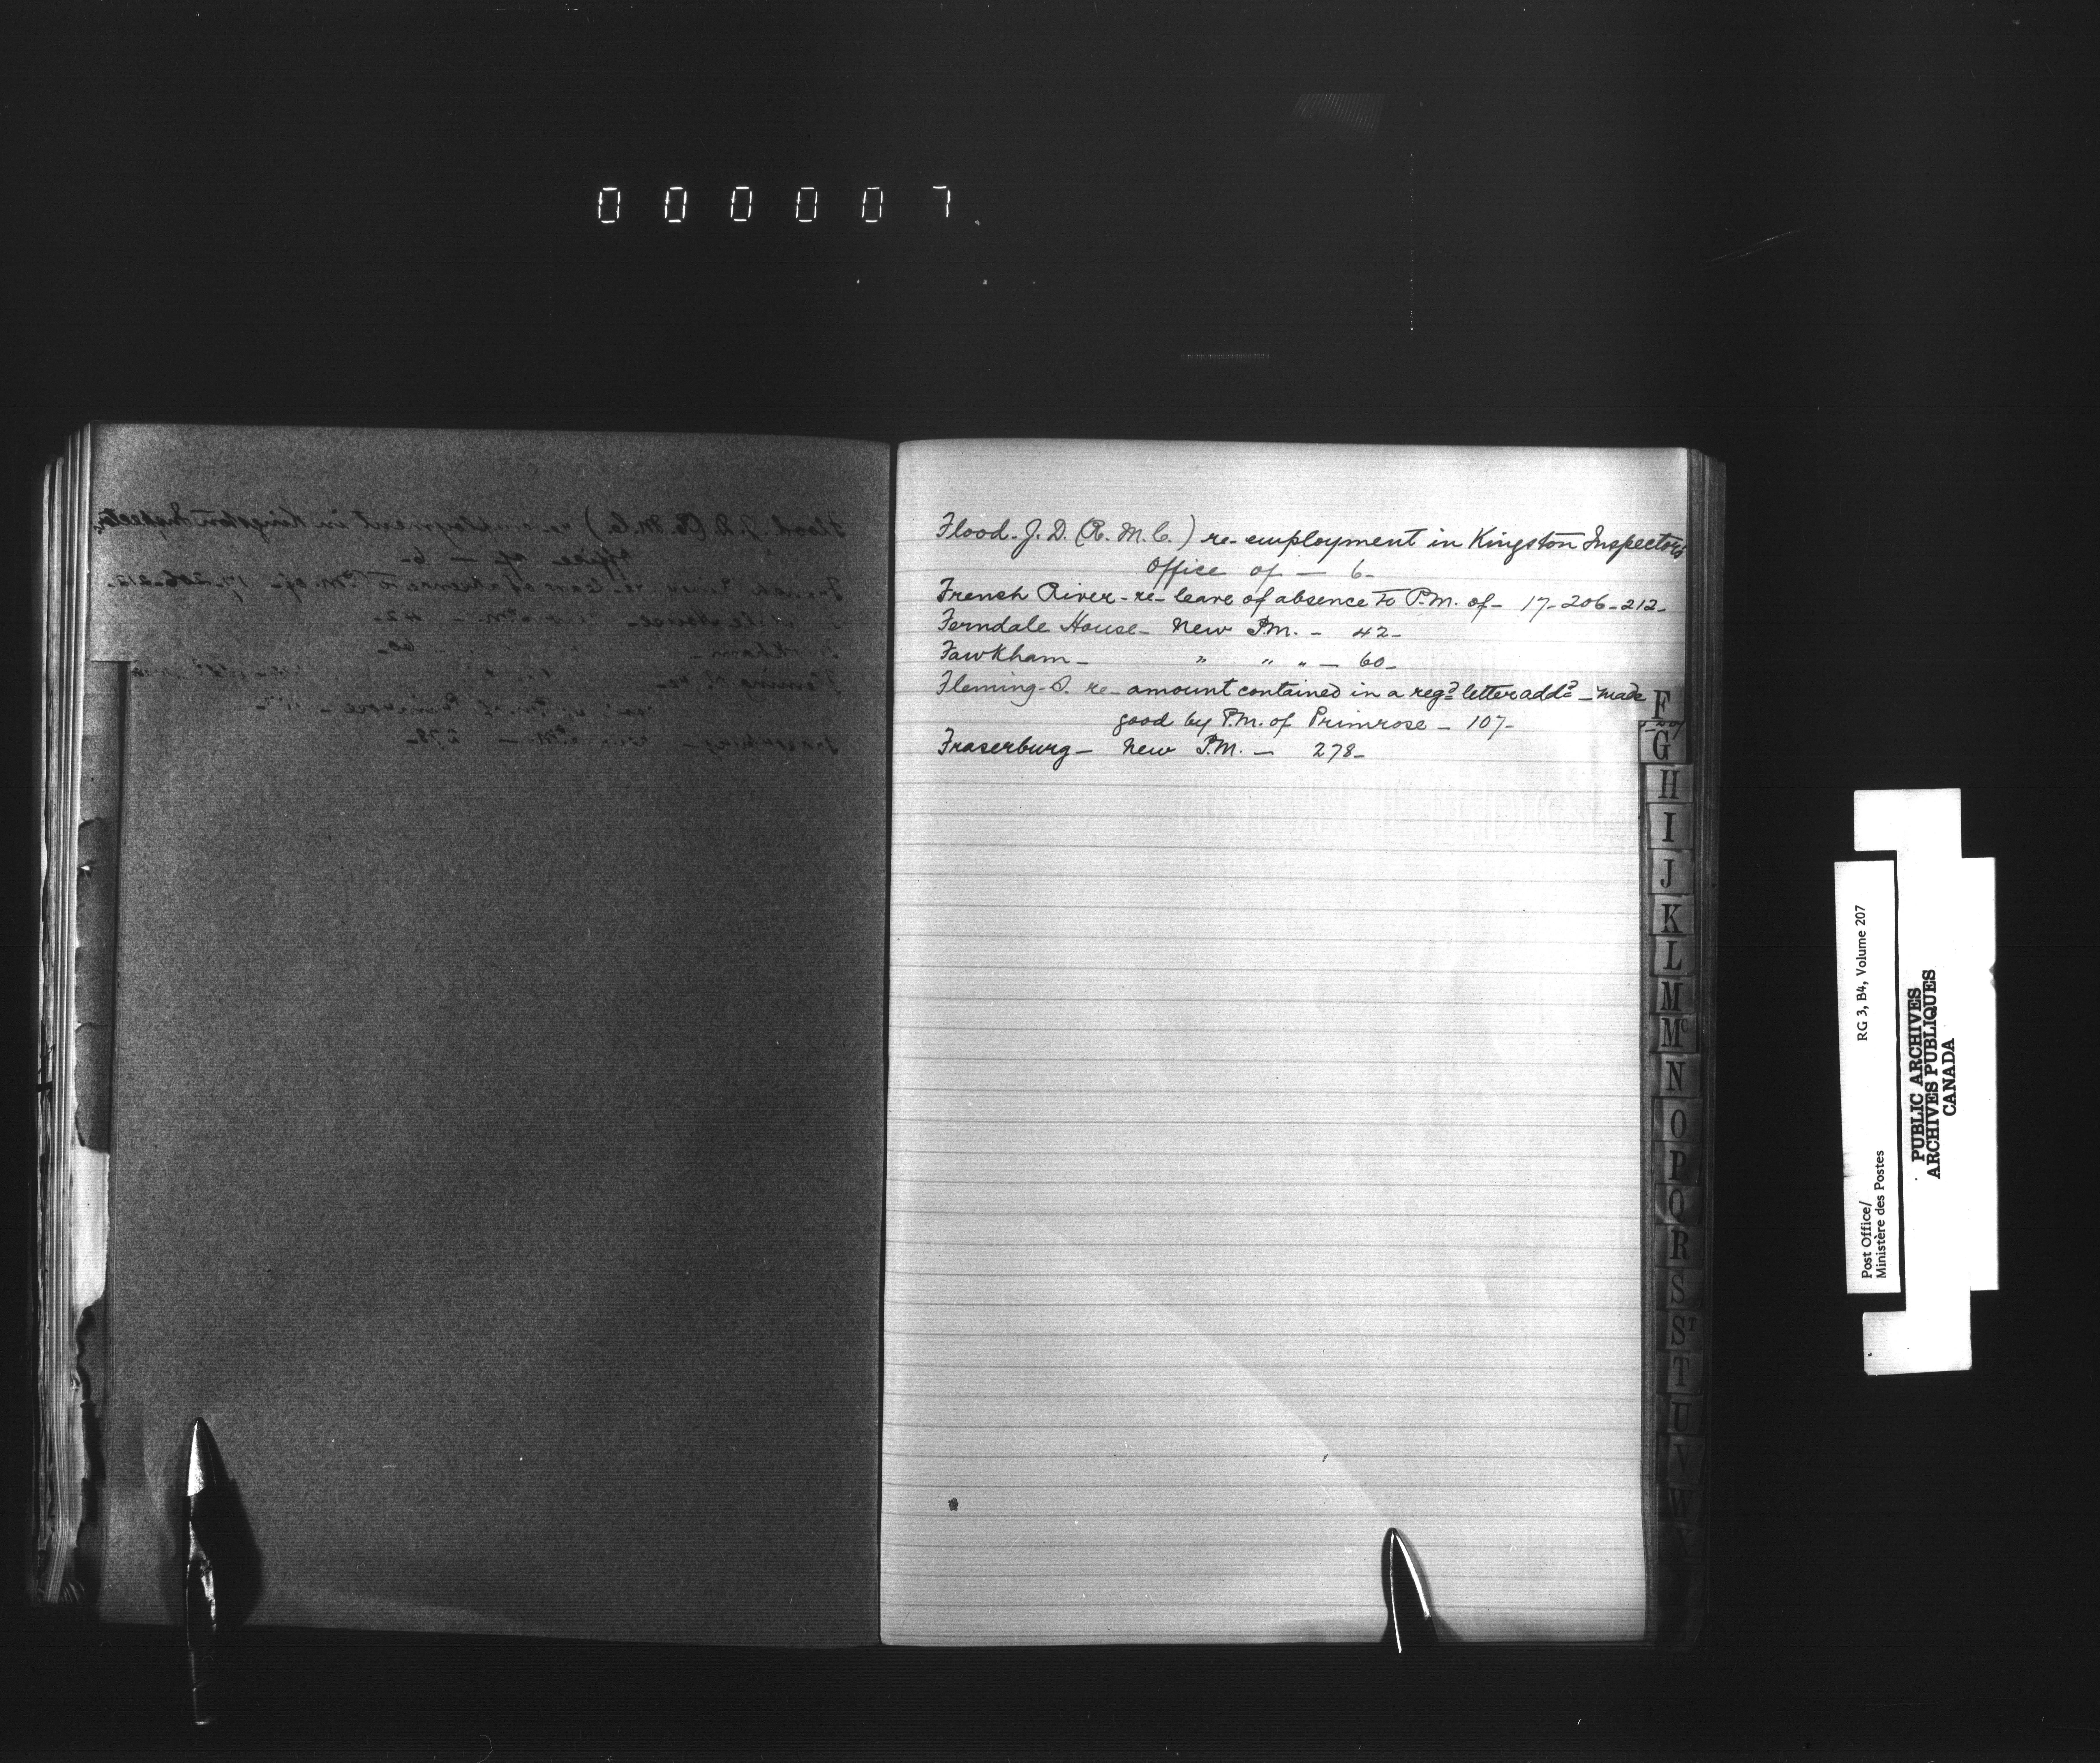 000007
Flood. J. D. (R. M. C.) re- employment in Kingston Inspectors
Office of — 6-
French River - re- leave of absence to P.M. of- 17- 206-212-
Ferndale House- New P.M. - 42-
Fawkham- " " " — 60-
Fleming- S. re- amount contained in a regd letter addd - made
good by P.M. of Primrose - 107-
Fraserburg- New P.M. — 278-
F
G
H
I
J
K
L
M
Mc
N
O
P
Q
R
S
ST
T
U
V
W
Post Office/
Ministère des Postes
RG 3, B4, Volume 207
PUBLIC ARCHIVES
ARCHIVES PUBLIQUES
CANADA